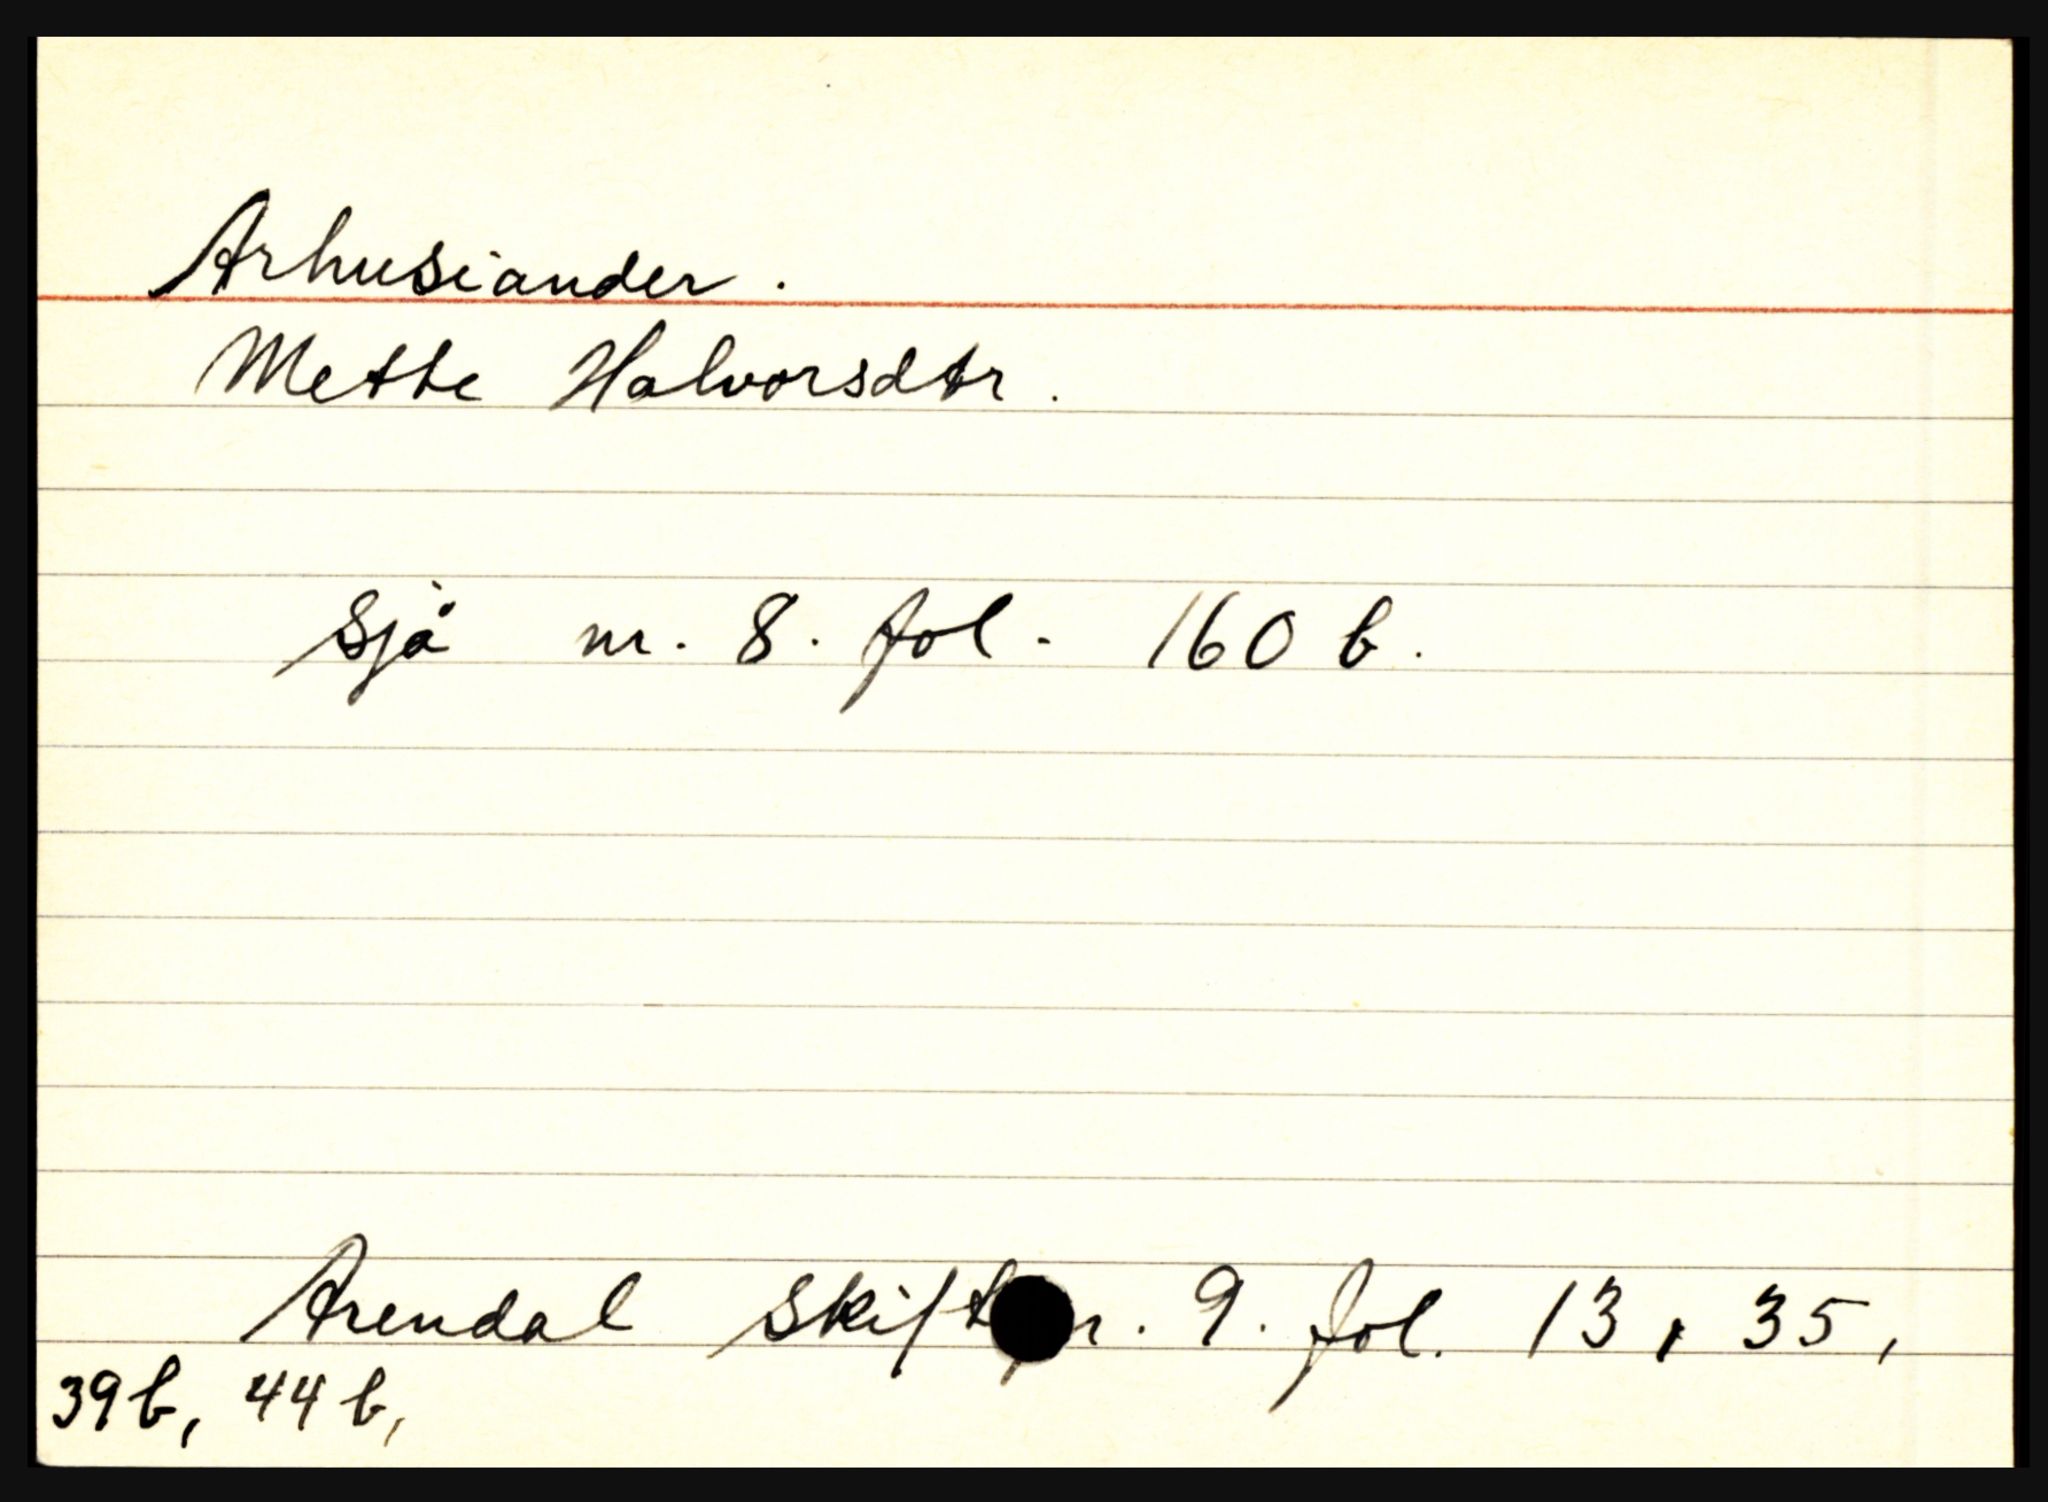 Arhusiander.
Mette Halvorsdtr.
Sjå nr. 8. fol. 160 b.
Arendal Skift 9. fol. 13, 35,
39b, 44b,